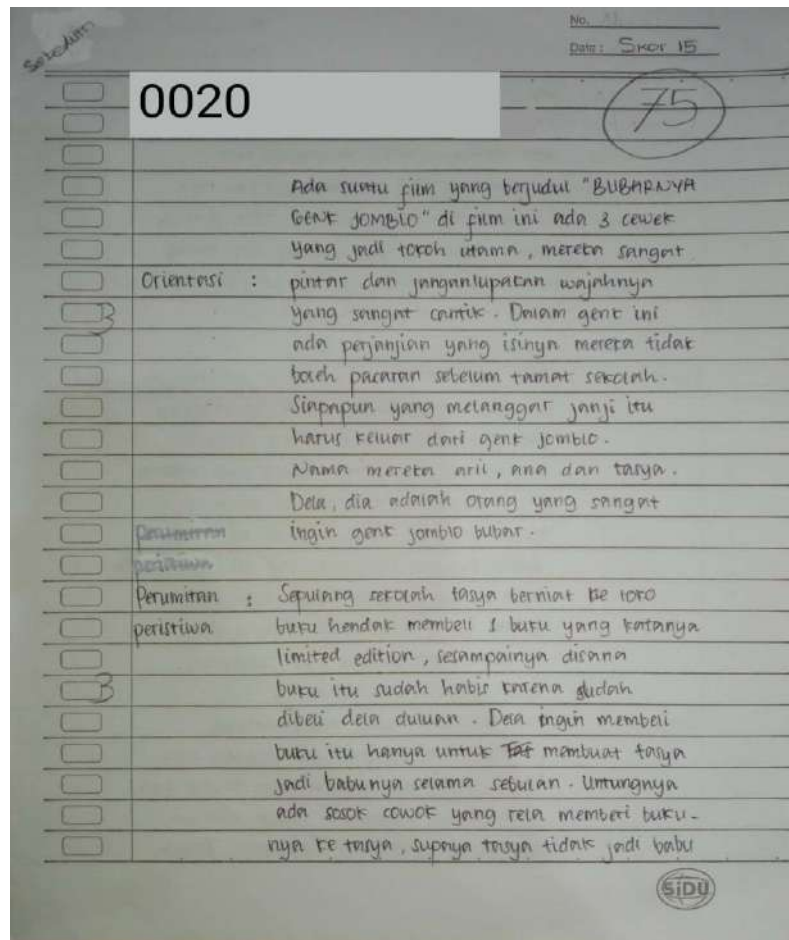 Sebelum
No.
Date : Skor 15
0020
75
Ada suatu film yang berjudul "BUBARNYA
GENK JOMBLO" di film ini ada 3 cewek
yang jadi tokoh utama, mereka sangat
Orientasi : pintar dan janganlupakan wajahnya
3 yang sangat cantik. Dalam genk ini
ada perjanjian yang isinya mereka tidak
boleh pacaran sebelum tamat sekolah.
Siapapun yang melanggar janji itu
harus keluar dari genk jomblo.
Nama mereka aril, ana dan tasya.
Dela, dia adalah orang yang sangat
perumitan ingin genk jomblo bubar.
peristiwa
Perumitan : Sepulang sekolah tasya berniat ke toko
peristiwa buku hendak membeli 1 buku yang katanya
limited edition, sesampainya disana
3 buku itu sudah habis karena sudah
dibeli dela duluan. Dela ingin membeli
buku itu hanya untuk Taf membuat tasya
jadi babunya selama sebulan. Untungnya
ada sosok cowok yang rela memberi buku-
nya ke tasya, supaya tasya tidak jadi babu
SIDU